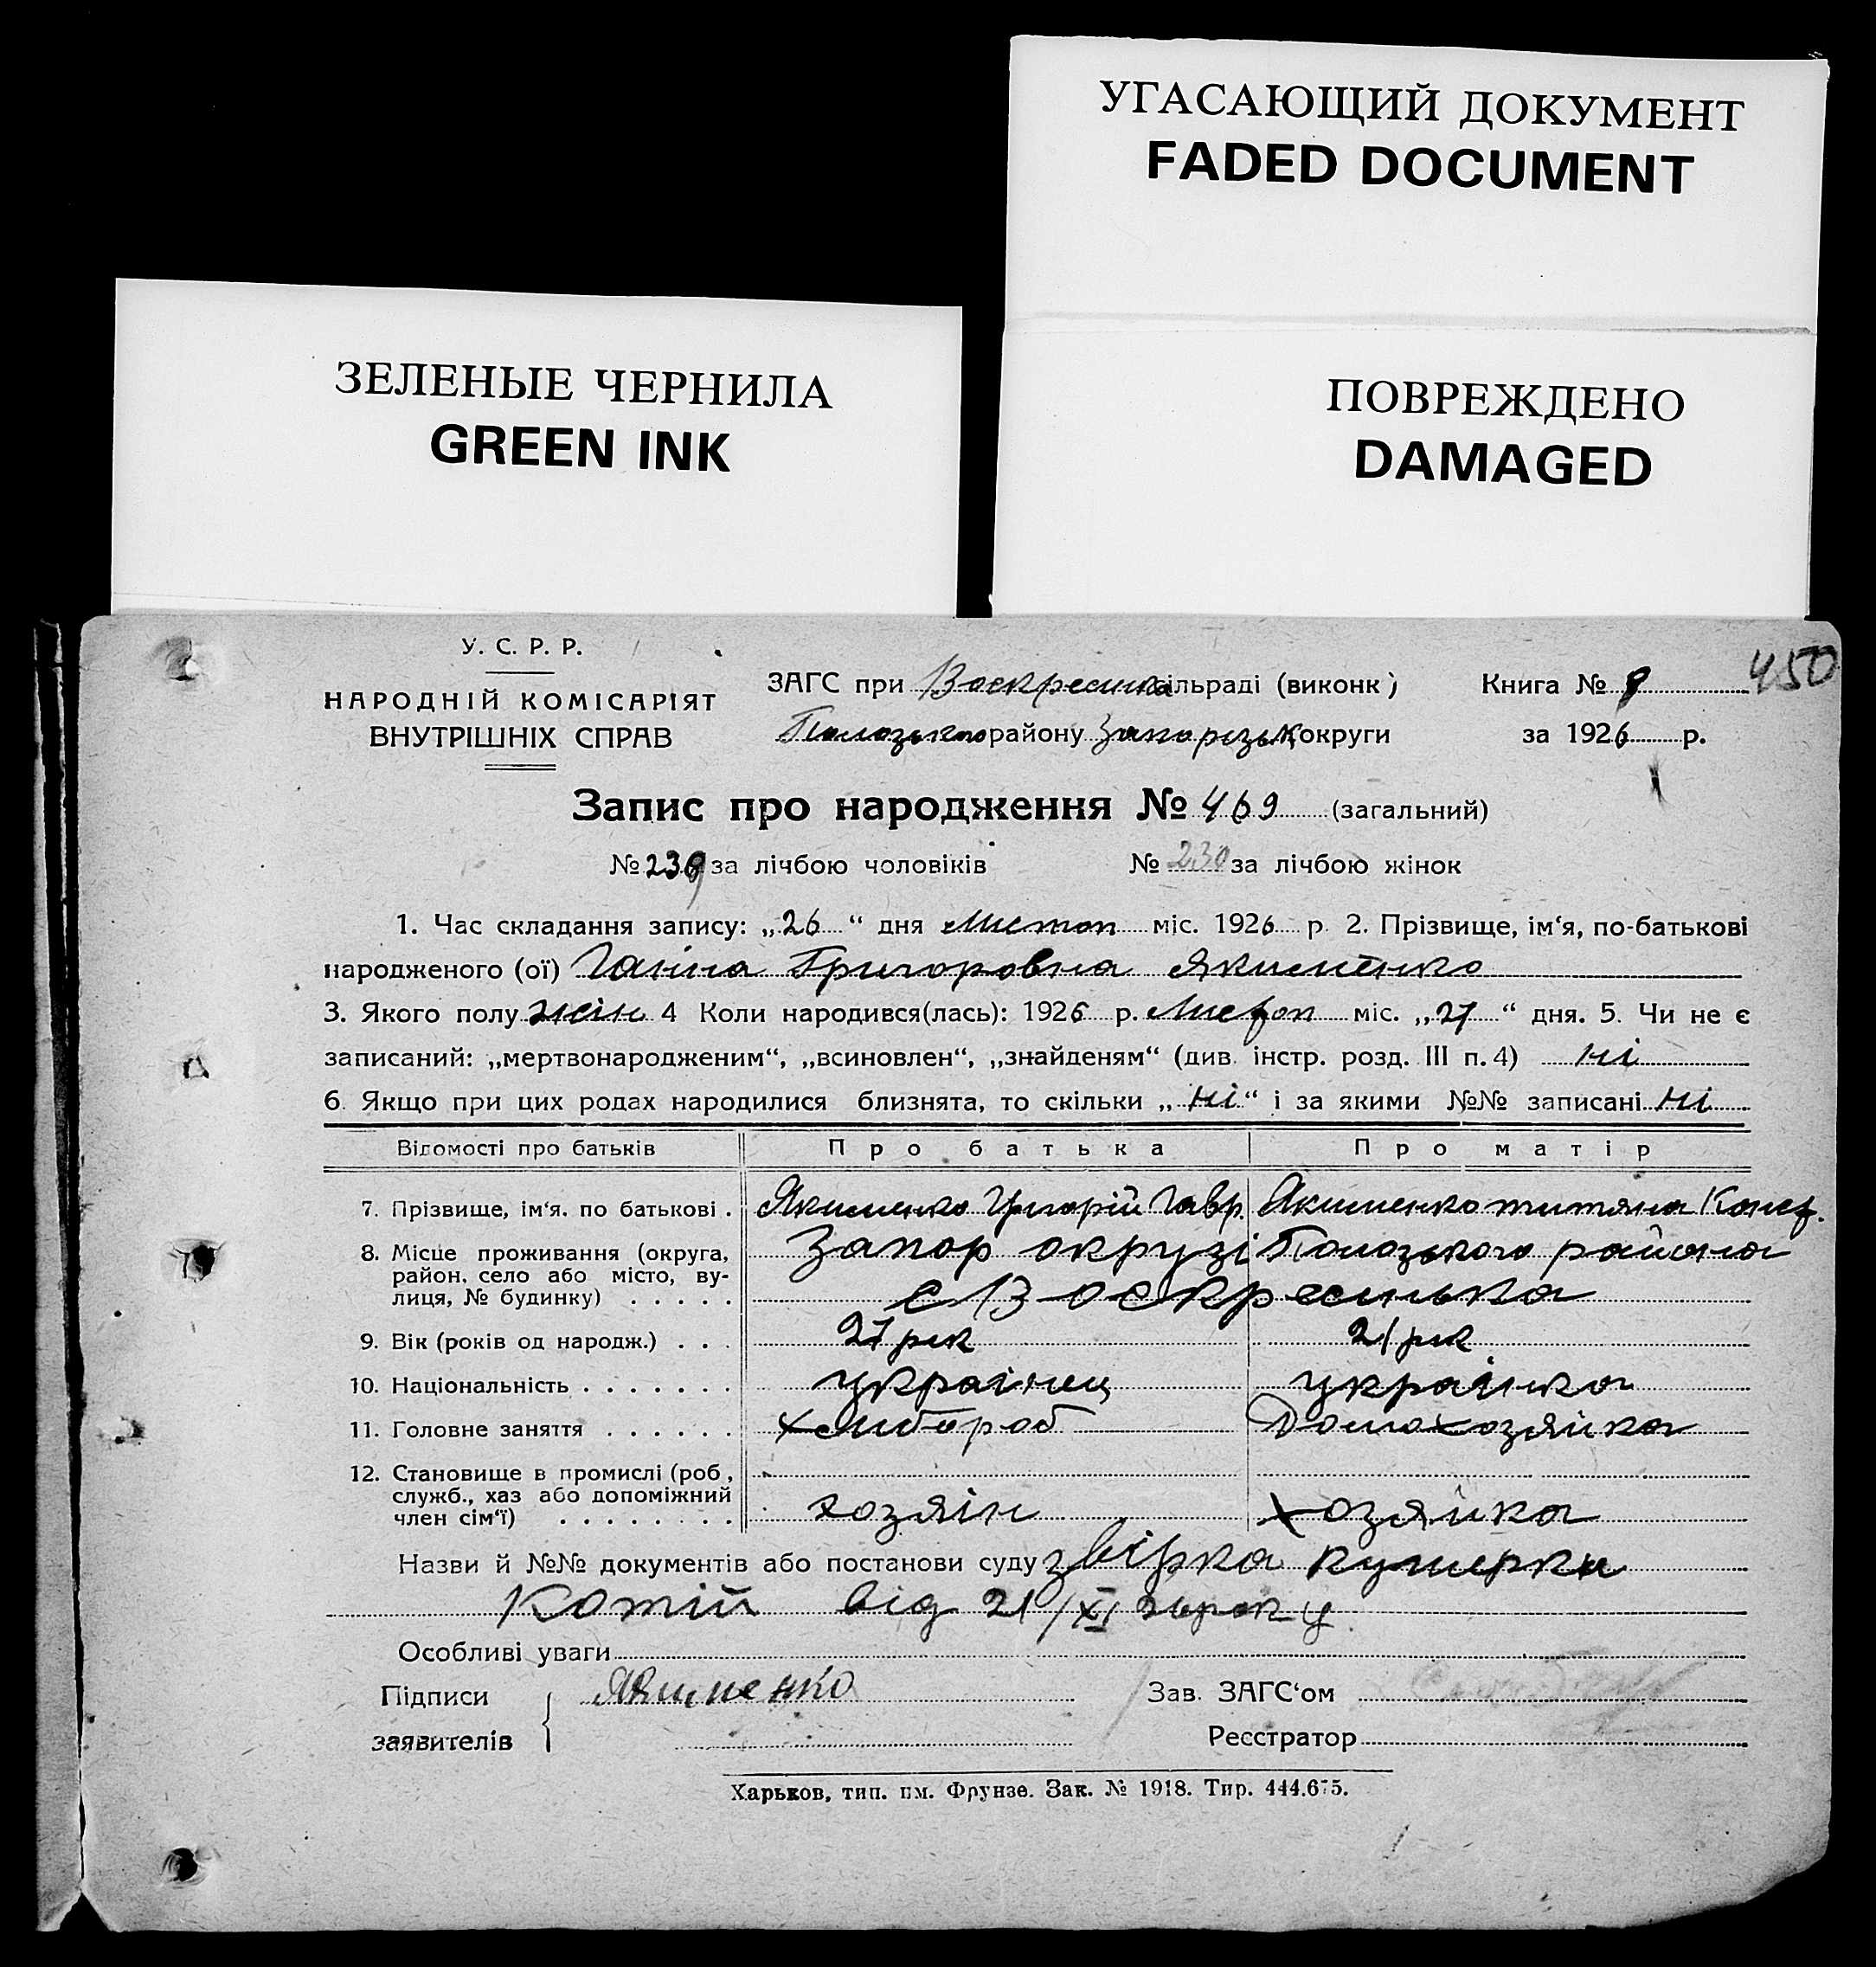 УГАСАЮЩИЙ ДОКУМЕНТ
FADED DOCUMENT
ЗЕЛЕНЫЕ ЧЕРНИЛА
GREEN INK
ПОВРЕЖДЕНО
DAMAGED
450
У. С. Р. Р.
НАРОДНІЙ КОМІСАРІЯТ
ВНУТРІШНІХ СПРАВ
ЗАГС при Воскресинка сільраді (виконк)
Полозького району Запорізьк округи
Книга №
за 1926 р.
Запис про народження № 469 (загальний)
№ 239 за лічбою чоловіків № 230 за лічбою жінок
1. Час складання запису: „26“ дня Листоп міс. 1926 р. 2. Прізвище, ім‘я, по-батькові
народженого (ої) Ганна Григоровна Якименко
3. Якого полу жін 4 Коли народився(лась): 1926 р. Листоп міс. „27“ дня. 5. Чи не є
записаний: „мертвонародженим“, „всиновлен“, „знайденям“ (див. інстр. розд. III п. 4) ні
6. Якщо при цих родах народилися близнята, то скільки „ні“ і за якими №№ записані ні
Відомості про батьків Про батька Про матір
7. Прізвище, ім‘я. по батькові . Якименко Григорій Гавр. Якименко титяна Конст.
8. Місце проживання (округа, район, село або місто, вулиця, № будинку) . . . . . Запор окрузі Полозького района
с Воскресинька
9. Вік (років од народж.) . . . 27 рік 21 рік
10. Національність . . . . . . . українец українка
11. Головне заняття . . . . . . хлибороб Домохозяйка
12. Становище в промислі (роб., служб., хаз або допоміжний член сім‘ї) . . . . . . . . хозяін хозяйка
Назви й №№ документів або постанови суду звірка
від 21/XI 26 року
Особливі уваги
Підписи
заявителів
Якименко
Зав. ЗАГС‘ом
Реєстратор
Харьков, тип. им. Фрунзе. Зак. № 1918. Тир. 444.675.